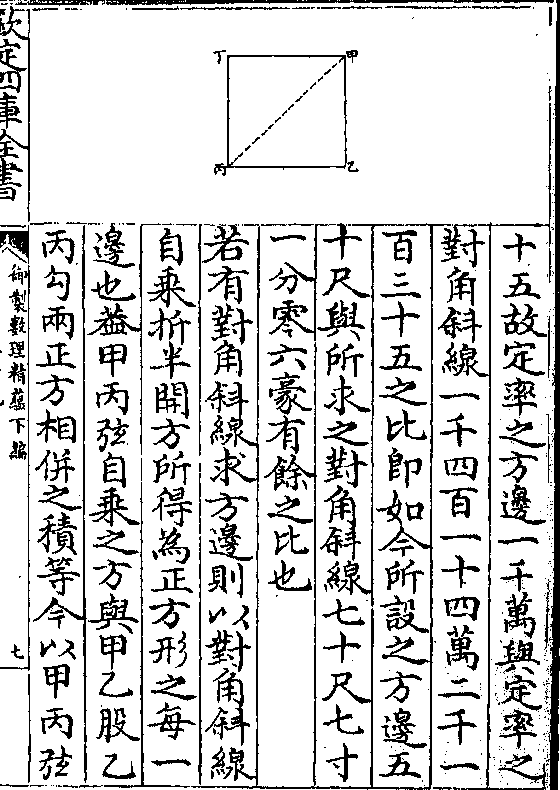 十五故定率之方邊一千萬與定率之
對角斜線一千四百一十四萬二千一
百三十五之比即如今所設之方邊五
十尺與所求之對角斜線七十尺七寸
一分零六豪有餘之比也
若有對角斜線求方邊則以對角斜線
自乗折半開方所得為正方形之每一
邊也葢甲丙弦自乗之方與甲乙股乙
丙勾兩正方相併之積等今以甲丙弦
甲
乙
丙
丁
欽定四庫全書
御製數理精蘊下編
七